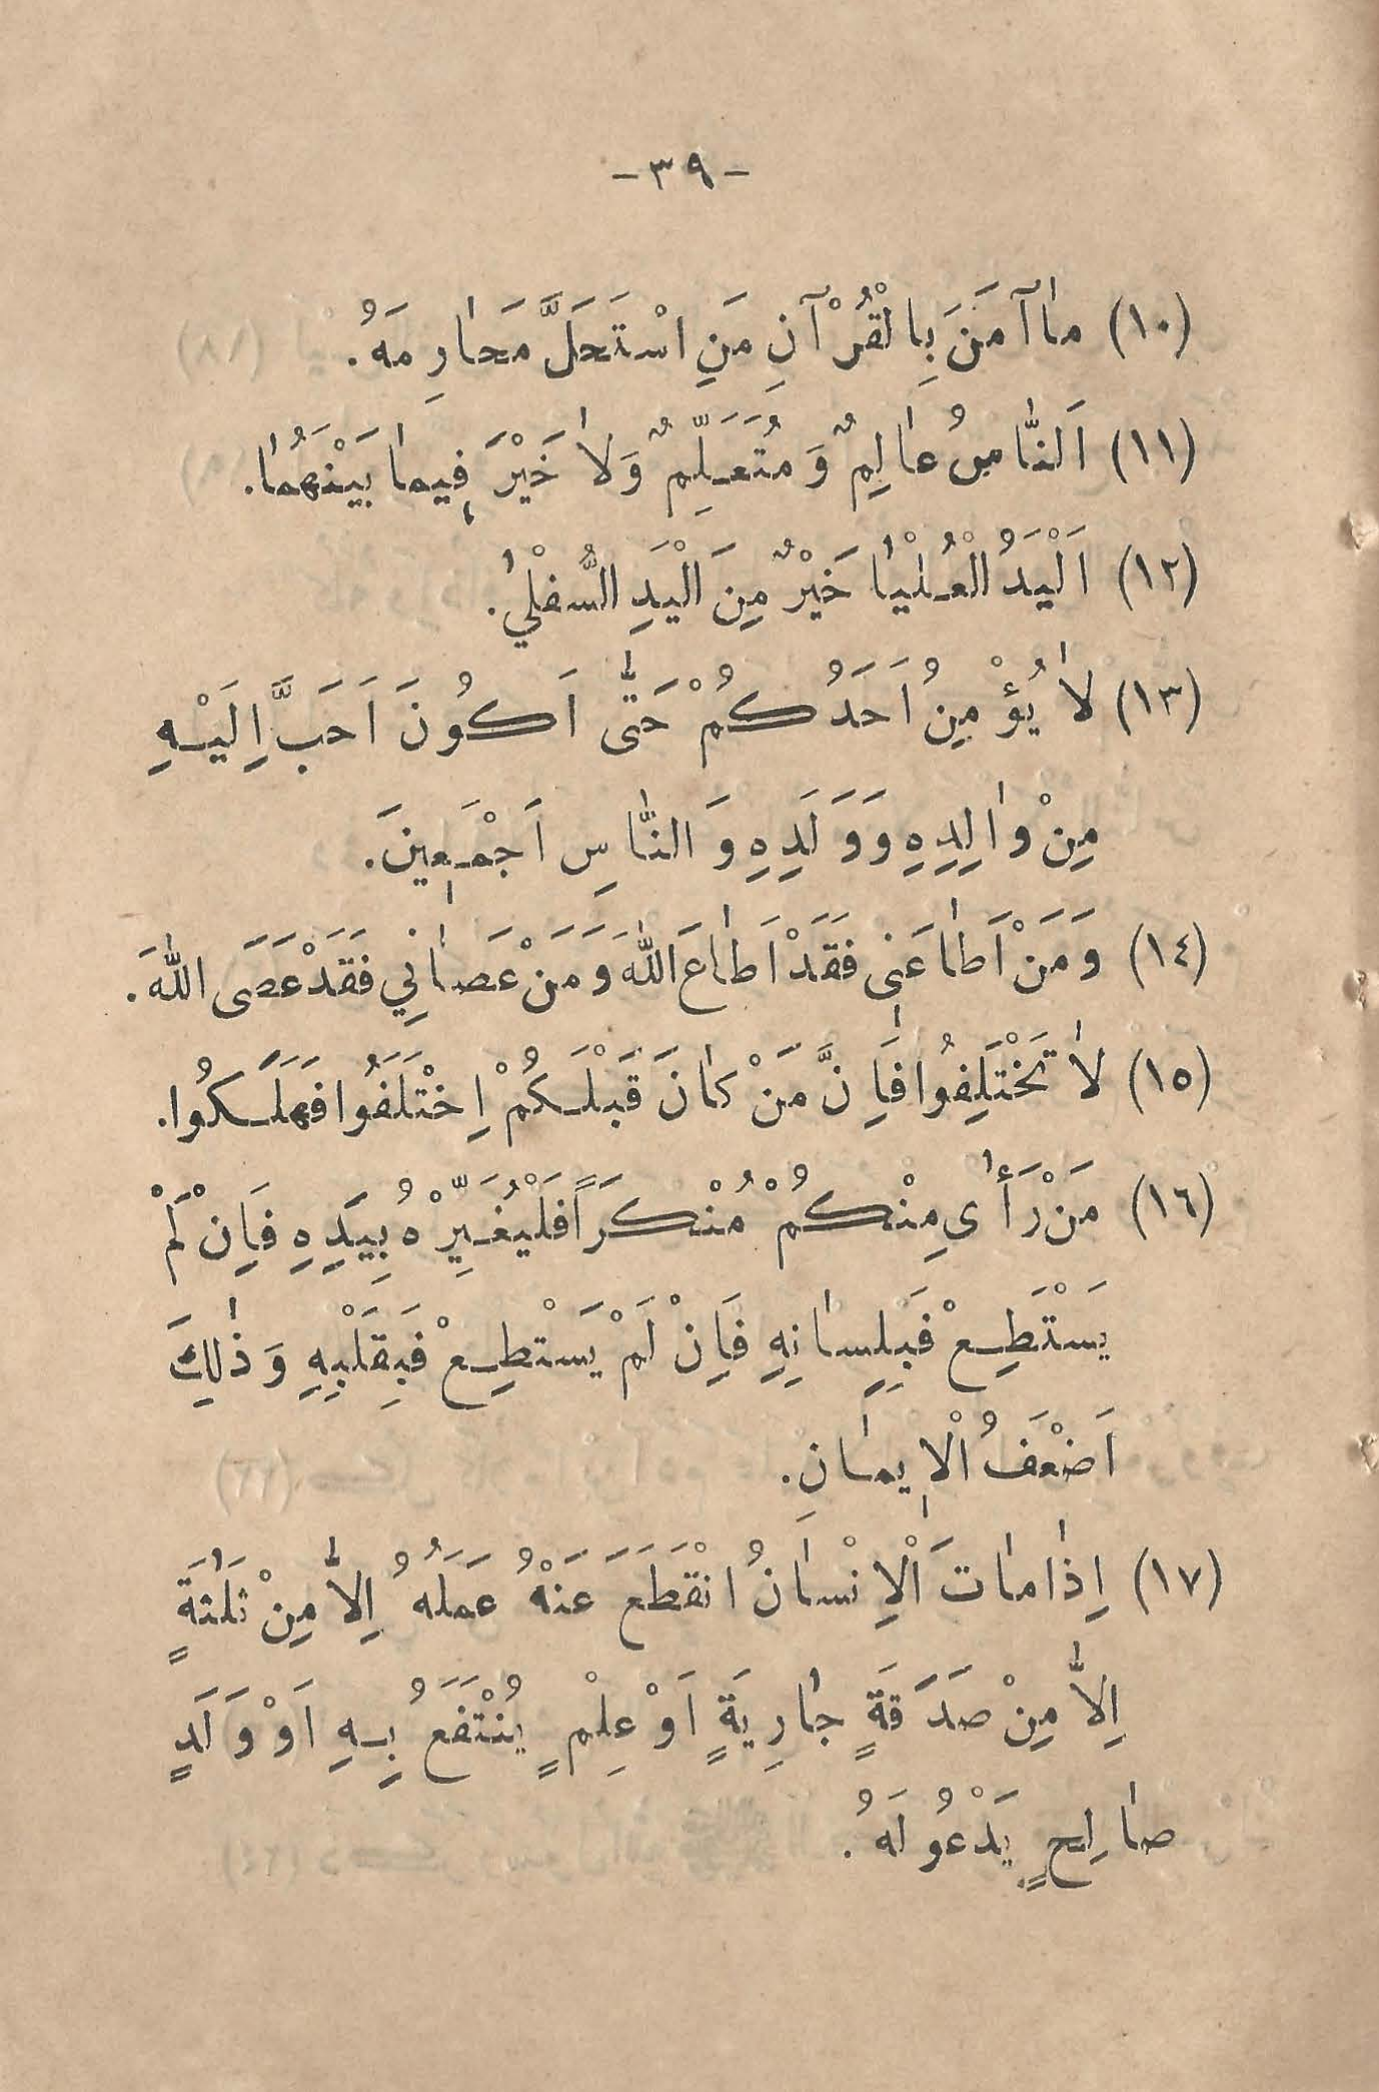 -٣٩-
(١٠) مٰا آمَنَ بِالْقُرْآنِ مَنِ اسْتَحَلَّ مَحٰارِمَهُ.
(١١) اَلنّٰاسُ عٰالِمٌ وَ مُتَعَلِّمٌ وَلاٰ خَيْرَ فِيمٰا بَيْنَهُمٰا.
(١٢) اَلْيَدُ الْعُلْيٰا خَيْرٌ مِنَ الْيَدِ السُّفْلىٰ.
(١٣) لاٰ يُؤْمِنُ اَحَدُكُمْ حَتّٰى اَكُونَ اَحَبَّ اِلَيْهِ
مِنْ وٰالِدِهِ وَ وَلَدِهِ وَ النّٰاسِ اَجْمَعِينَ.
(١٤) وَ مَنْ اَطٰاعَنِى فَقَدْ اَطٰاعَ اللّٰهَ وَ مَنْ عَصٰانِي فَقَدْ عَصَى اللّٰهَ.
(١٥) لاٰ تَخْتَلِفُوا فَاِنَّ مَنْ كٰانَ قَبْلَكُمْ اِخْتَلَفُوا فَهَلَكُوا.
(١٦) مَنْ رَأٰى مِنْكُمْ مُنْكَراً فَلْيُغَيِّرْهُ بِيَدِهِ فَاِنْ لَمْ
يَسْتَطِعْ فَبِلِسٰانِهِ فَاِنْ لَمْ يَسْتَطِعْ فَبِقَلْبِهِ وَ ذٰلِكَ
اَضْعَفُ الْاِيمٰانِ.
(١٧) اِذٰا مٰاتَ الْاِنْسٰانُ انْقَطَعَ عَنْهُ عَمَلُهُ اِلاّٰ مِنْ ثَلٰثَةٍ
اِلاّٰ مِنْ صَدَقَةٍ جٰارِيَةٍ اَوْ عِلْمٍ يُنْتَفَعُ بِهِ اَوْ وَلَدٍ
صٰالِحٍ يَدْعُو لَهُ.